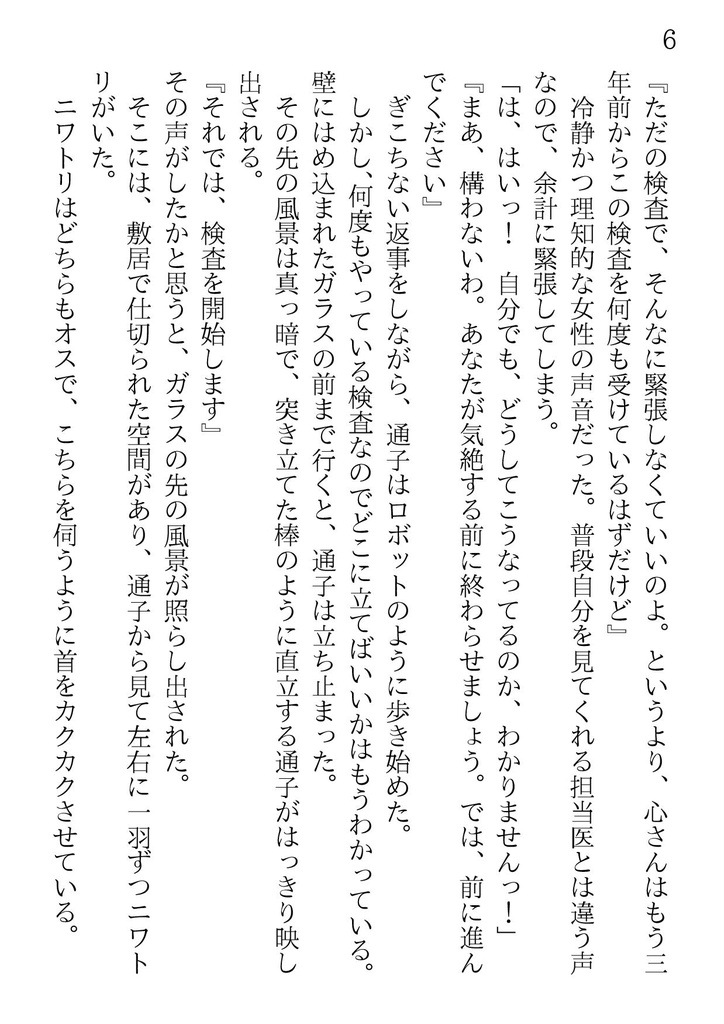 6
『ただの検査で、そんなに緊張しなくていいのよ。というより、心さんはもう三
年前からこの検査を何度も受けているはずだけど』
　冷静かつ理知的な女性の声音だった。普段自分を見てくれる担当医とは違う声
なので、余計に緊張してしまう。
「は、はいっ！　自分でも、どうしてこうなってるのか、わかりませんっ！」
『まあ、構わないわ。あなたが気絶する前に終わらせましょう。では、前に進ん
でください』
　ぎこちない返事をしながら、通子はロボットのように歩き始めた。
　しかし、何度もやっている検査なのでどこに立てばいいかはもうわかっている。
壁にはめ込まれたガラスの前まで行くと、通子は立ち止まった。
　その先の風景は真っ暗で、突き立てた棒のように直立する通子がはっきり映し
出される。
『それでは、検査を開始します』
その声がしたかと思うと、ガラスの先の風景が照らし出された。
　そこには、敷居で仕切られた空間があり、通子から見て左右に一羽ずつニワト
リがいた。
　ニワトリはどちらもオスで、こちらを伺うように首をカクカクさせている。